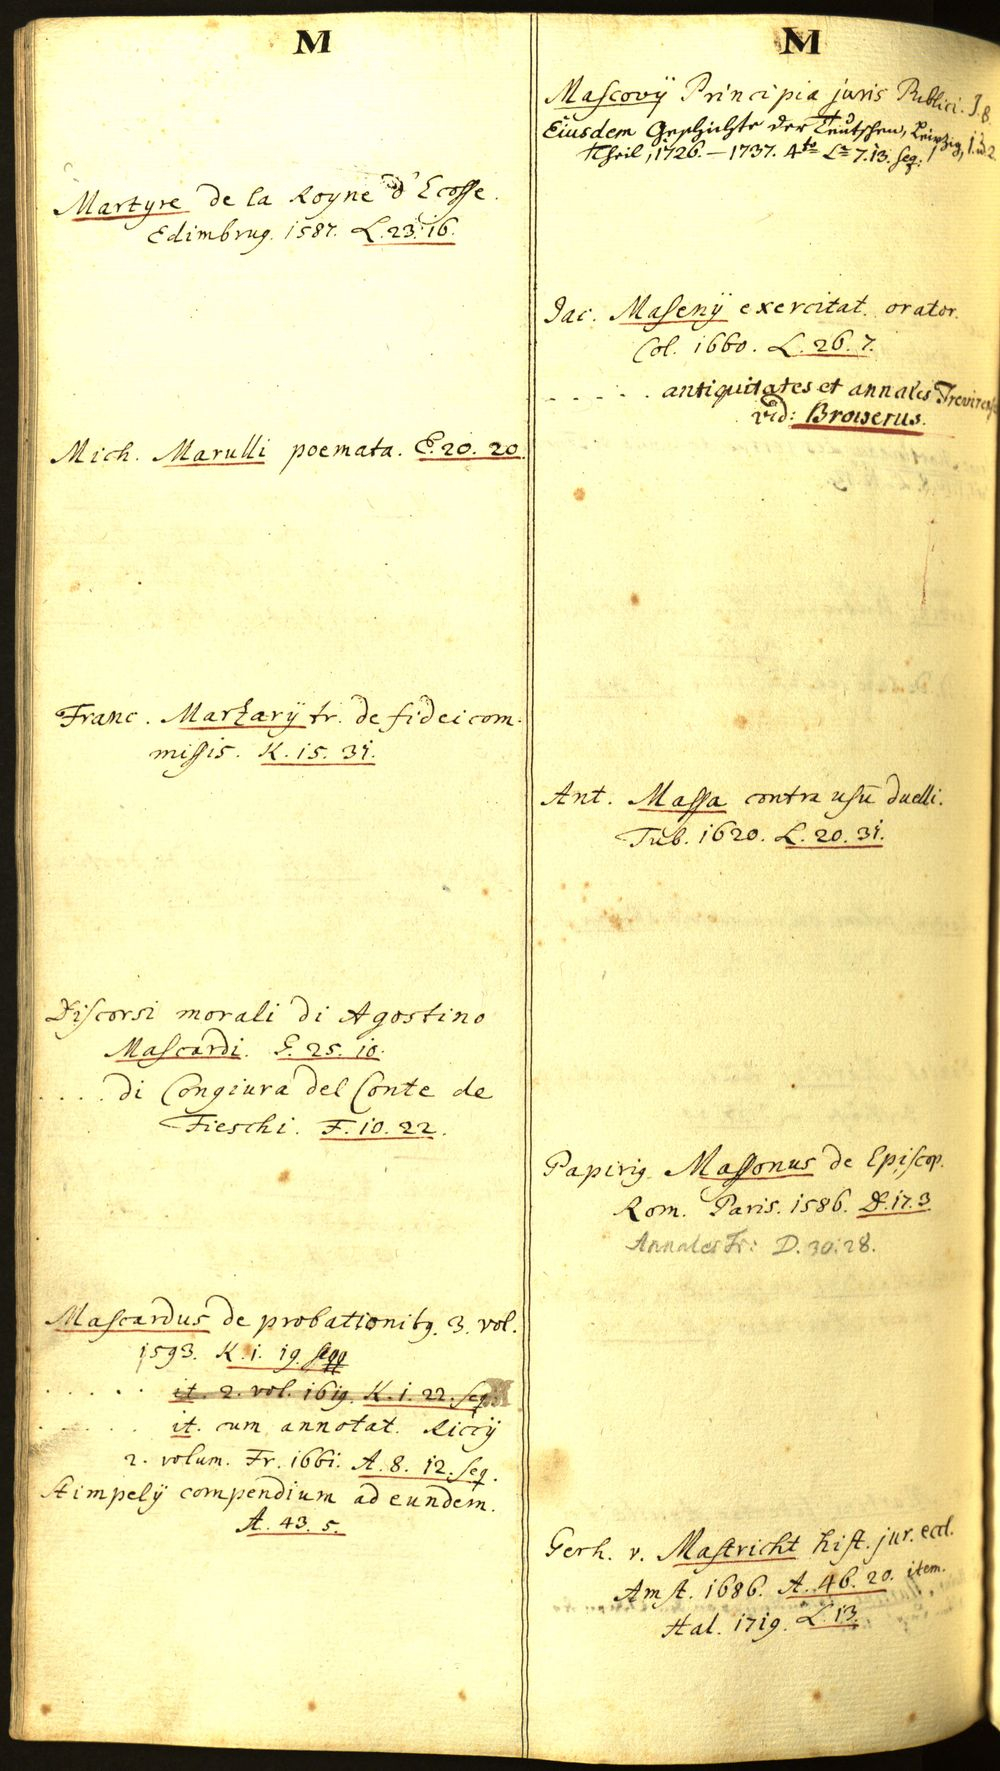 M
Martyre de la Royne d'Ecosse.
Edimbrug. 1587. L. 23. 16.
Mich. Marulli poemata. E. 20. 20.
Franc. Marzarij tr. de fideicom-
missis. K. 15. 31.
Discorsi morali di Agostino
Mascardi. E. 25. 10.
. . . . di Congiura del Conte de
Fieschi. F. 10. 22.
Mascardus de probationibg. 3. vol.
1593. K. 1. 19. seqq
. . . . . it. 2. vol. 1619. K. 1. 22. seq.
. . . . . it. cum annotat. Riccij
2. volum. Fr. 1661. A. 8. 12. seq.
Stimpelij compendium ad eundem.
A. 43. 5.
M
Mascovij Principia juris Publici. J. 8.
Eiusdem Geschichte der Teutschen, Leipzig, 1. u. 2.
Theil, 1726. – 1737. 4to L= 7. 13. seq.
Jac. Masenij exercitat. orator.
Col. 1660. L. 26. 7.
. . . . . antiquitates et annales Trevirens
vid: Browerus.
Ant. Massa contra usū duelli.
Tub. 1620. L. 20. 31.
Papirig. Massonus de Episcop.
Rom. Paris. 1586. D. 17. 3.
Annales Fr: D. 30. 28.
Gerh. v. Mastricht hist. jur. eccl.
Amst. 1686. A. 46. 20. item.
Hal. 1719. L. 13.